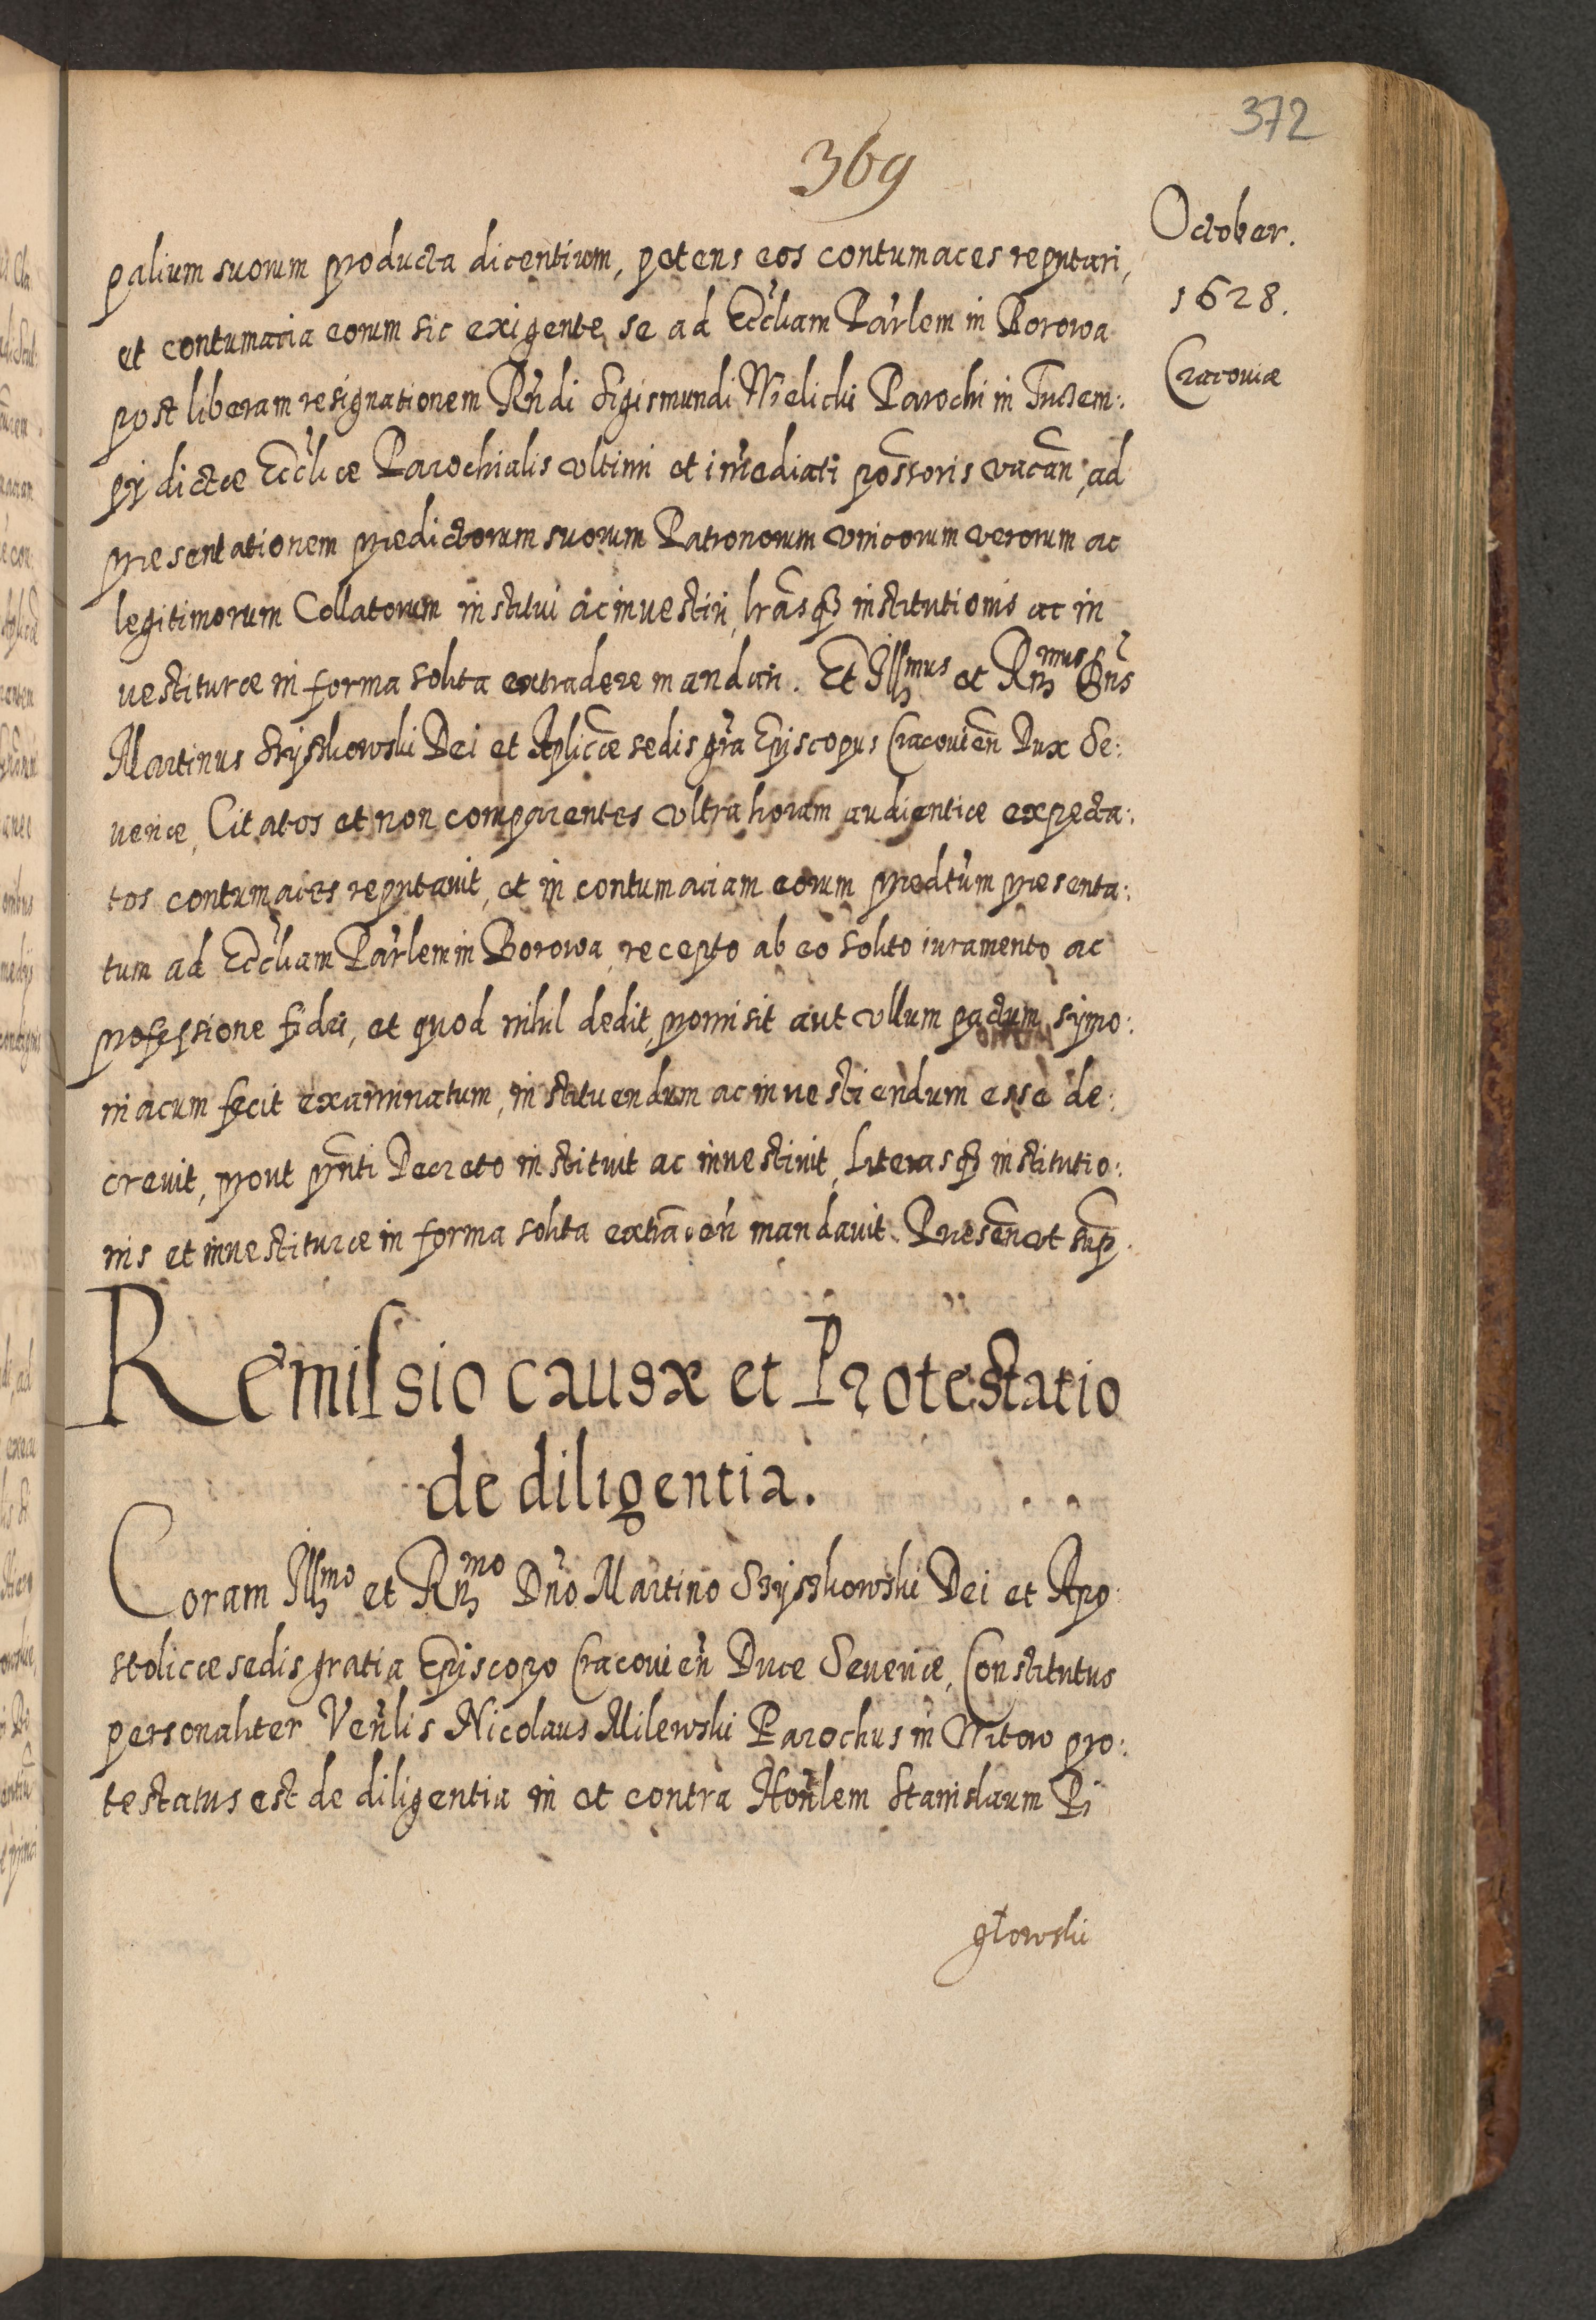 372
369
October.
1628.
Cracouiæ
palium suorum producta dicentium, petens eos contumaces reputari,
et contumacia eorum sic exigente, se ad Eccl̃iam Par̃lem in Borowa
post liberam resignationem Rñdi Sigismundi Wielicki Parochi in
pij dictæ Eccl̃iæ Parochialis vltimi et im̃ediati poss̃oris vacan̄, ad
præsentationem prædictorum suorum Patronorum vnicorum verorum ac
legitimorum Collatorum institui ac inuestiri, lr̃asq₃ institutionis ac in
uestituræ in forma solita extradere mandari. Et Illmus et Rmus Dñs
Martinus Szyszkowski Dei et Aplicæ sedis gr̃a Episcopus Cracouien̄ Dux Se:
ueriæ, Citatos et non comparentes vltra horam audientiæ expecta:
tos contumaces reputauit, et in contumaciam eorum prædtũm præsenta:
tum ad Eccl̃iam Par̃lem in Borowa, recepto ab eo solito iuramento ac
professione fidei, et quod nihil dedit, promisit aut vllum pactum symo:
niacum fecit examinatum, instituendum ac inuestiendum esse de:
creuit, prout pñti Decreto instituit ac inuestiuit, Literasq₃ institutio:
nis et inuestituræ in forma solita mandauit. Præsen̄ vt sup.
Remissio causæ et Protestatio
de diligentia.
Coram Illmo et Rmo Dño Martino Szyszkowski Dei et Apo
stolicæ sedis gratia Episcopo Cracouien̄ Duce Seueriæ, Constitutus
personaliter Ven̄lis Nicolaus Milewski Parochus in Witow pro:
testatus est de diligentia in et contra Hon̄lem Stanislaum Pi
głowski